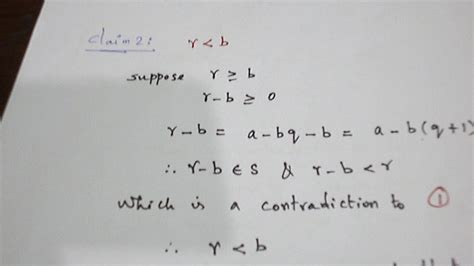 Claim 2: r < b
suppose r ≥ b
r-b ≥ 0
r-b = a-bq-b = a-b(q+1)
∴ r-b ∈ S & r-b < r
which is a contradiction to ①
∴ r < b